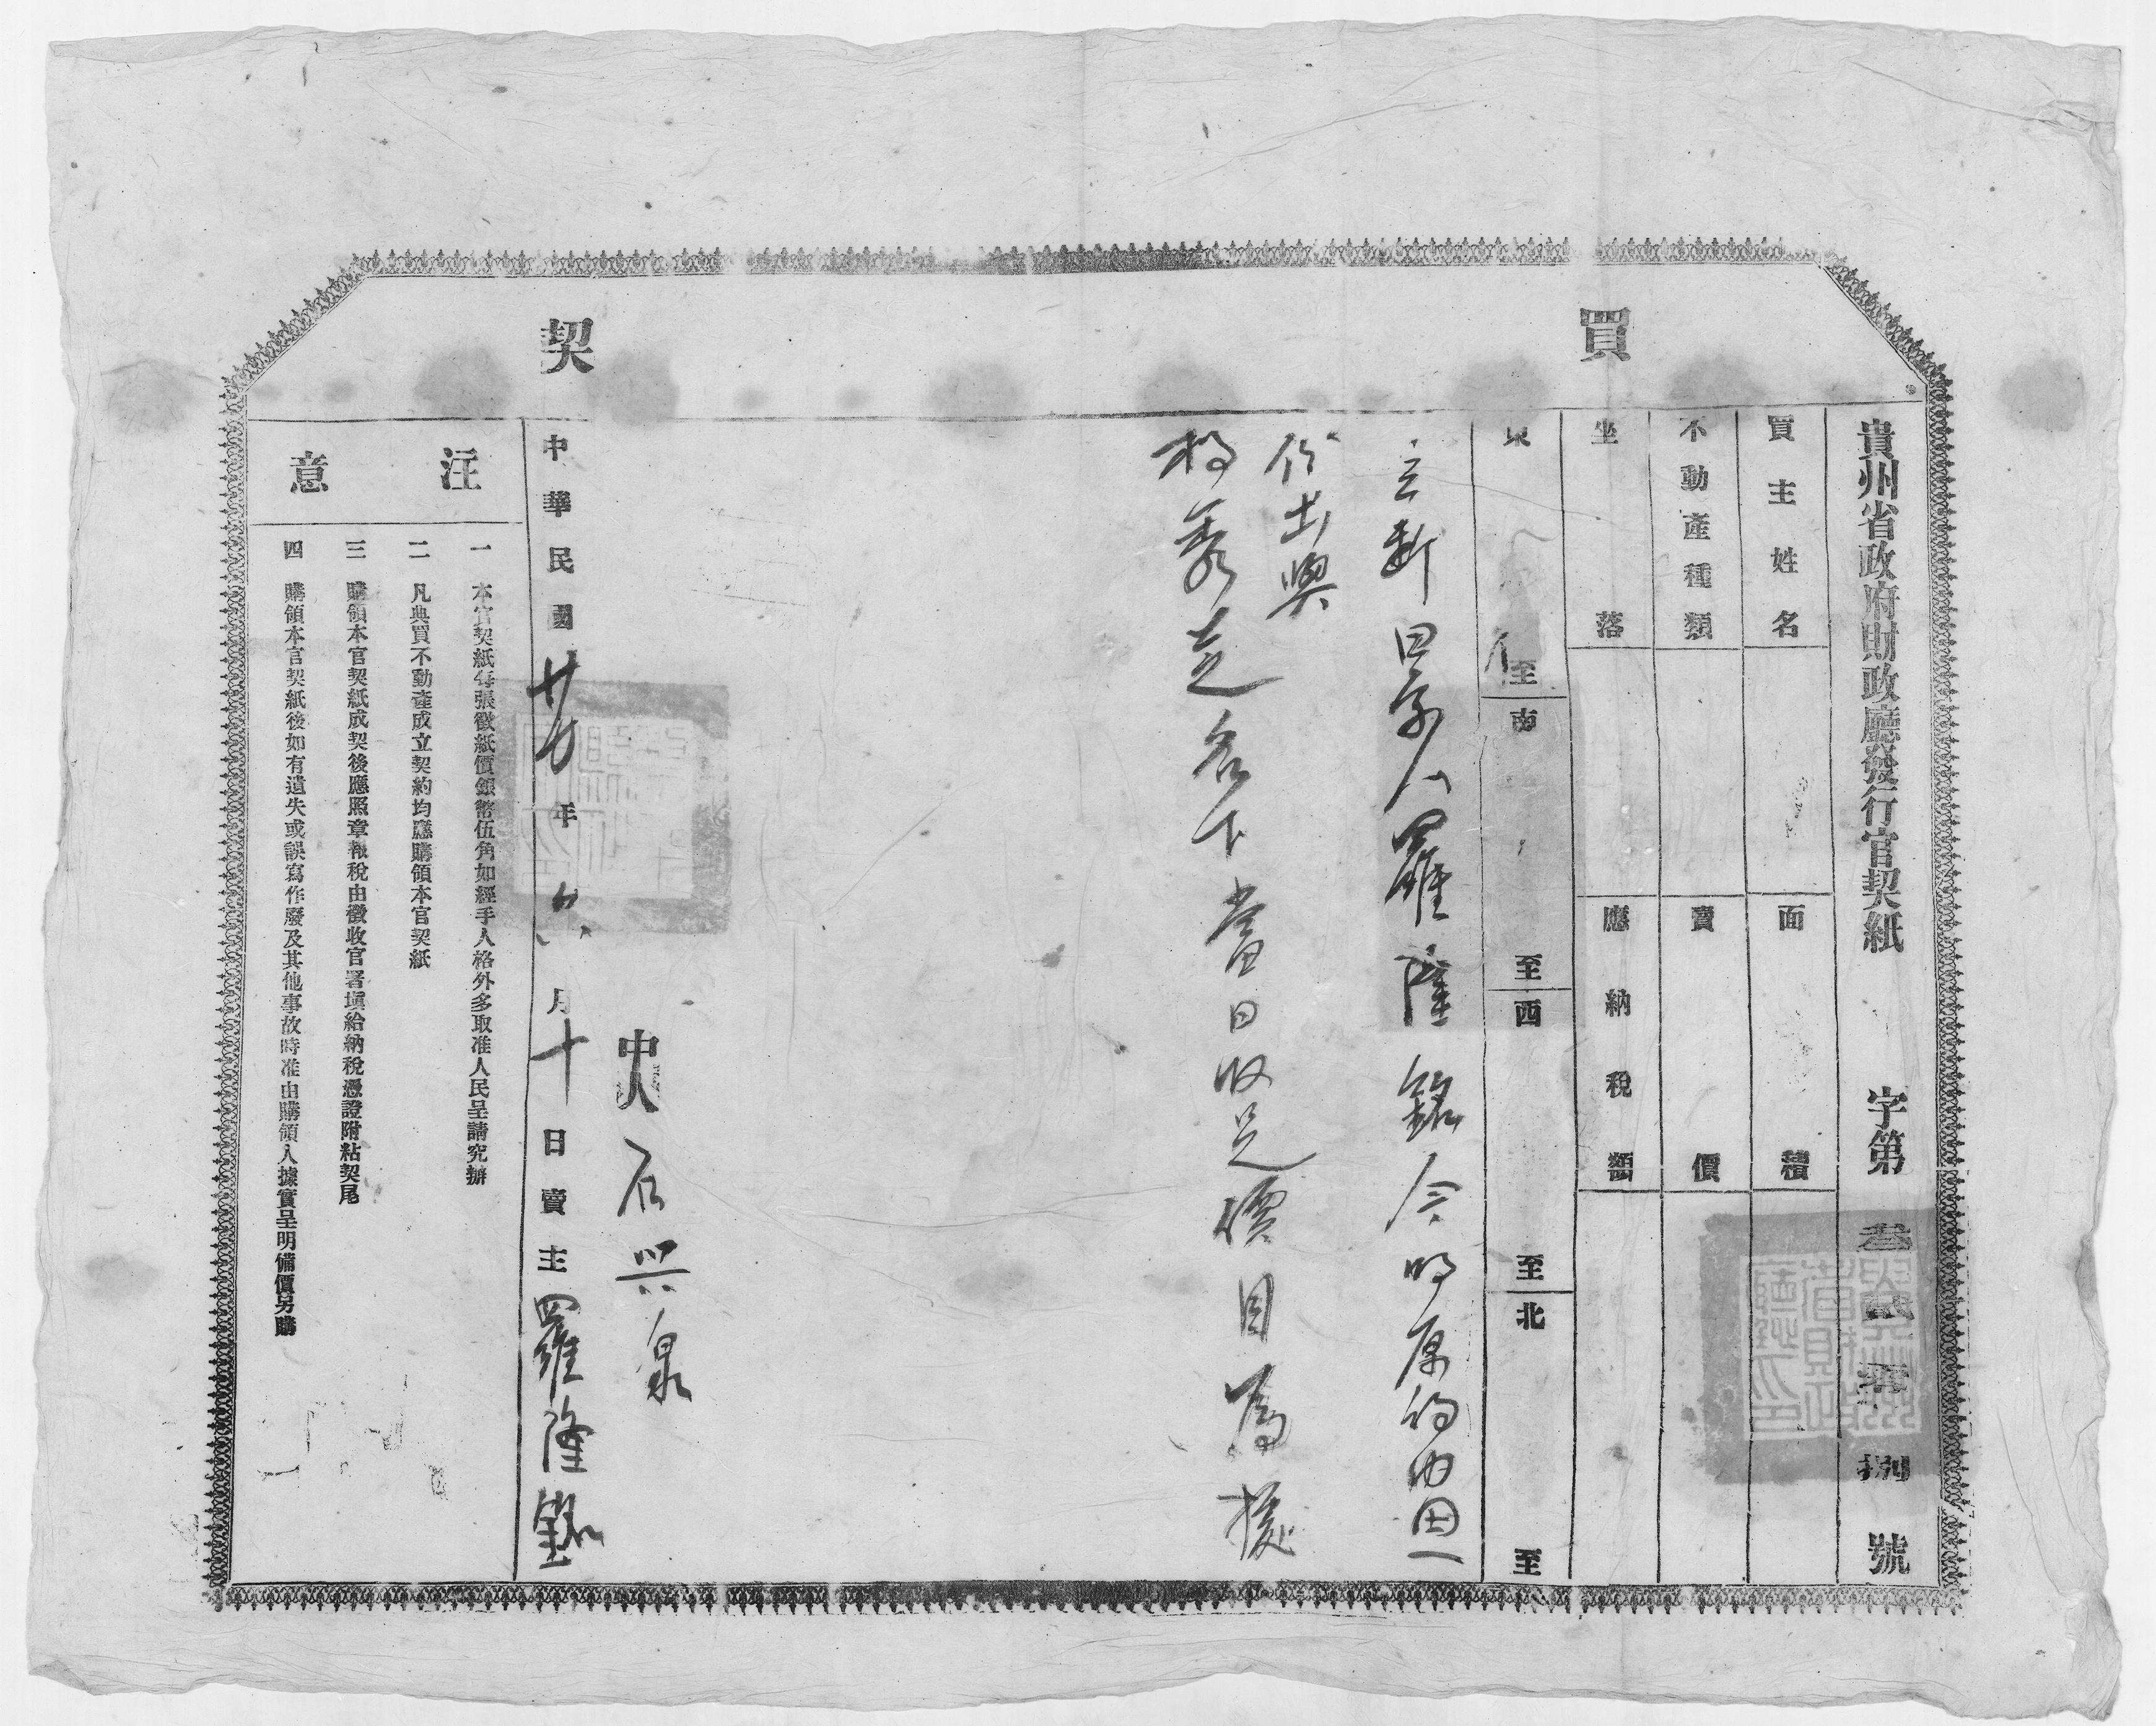 買契
貴州省政府財政廳發行官契紙 字第叁弍零捌號
買主姓名
面積
不動產種類
賣價
坐落
應納税額
東 至
南 至
西 至
北 至
立斷田字人羅隆銘今將原的田一
份出與
楊秀 名下當日收足價目為據
中人 石興泉
中華民國廿九年六月十日 賣主 羅隆銘
注意
一 本官契紙每張徵紙價銀幣伍角如經手人格外多取准人民呈請究辦
二 凡典買不動產成立契約均應購領本官契紙
三 購領本官契紙成契後應照章報稅由徵收官署塡給納稅憑證附粘契尾
四 購領本官契紙後如有遺失或誤寫作廢及其他事故時准由購領人據實呈明備價另購